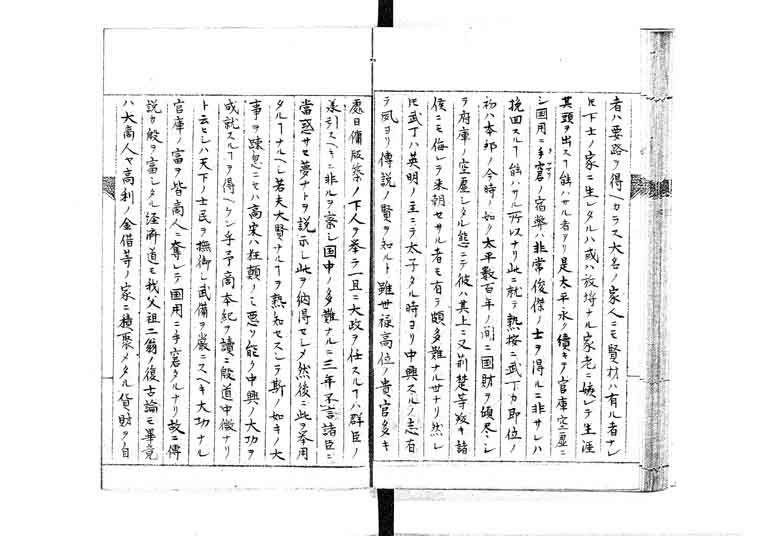 者ハ要路ヲ得ヘカラス大名ノ家人ニモ賢材ハ有ル者ナレ
𪜈下士ノ家ニ生レタルハ或ハ放埒ナル家老ニ嫉レテ生涯
其頭ヲ出スヿ能ハサル者アリ是太平永ク續キテ官庫空虚ニ
シ国用ニ手窘ノ宿弊ハ非常俊傑ノ士ヲ得ルニ非サレハ
挽回スルヿ能ハサル所以ナリ此ニ就テ熟按ニ武丁カ即位ノ
初ハ本邦ノ今時ノ如ク太平数百年ノ間ニ国財ヲ傾尽シ
ラ府庫ノ空虚シタル態ニテ彼ハ其上ニ又荊楚等叛キ諸
侯ニモ侮レラ来朝セサル者モ有テ頗多難ナル世ナリ然レ
𪜈武丁ハ英明ノ主ニテ太子タル時ヨリ中興スルノ志有
テ夙ヨリ傳説ノ賢ヲ知ルト雖世禄高位ノ貴官多キ
處日傭版築ノ下人ヲ挙テ一旦ニ大政ヲ任スルヿハ群臣ノ
承引スヘキニ非ルヲ察シ国中ノ多難ナルニ三年不言諸臣ニ
當惑サセ夢ナトヲ説示シ此ヲ納得セシメ然後ニ此ヲ挙用
タルヿナルヘシ若夫大賢ナルヿヲ熟知セスシテ斯ノ如キノ大
事ヲ疎忽ニセハ高宗ハ狂顛ノミ悪リ能ク中興ノ大功ヲ
成就スルヿヲ得ヘケン乎予商本紀ヲ讀ニ殷道中微ナリ
ト云ヒシハ天下ノ士民ヲ撫御シ武備ヲ嚴ニスヘキ大功ナル
官庫ノ富ヲ皆商人ニ奪レテ国用ニ手窘タルナリ故ニ傳
説カ殷ヲ富シタル経済道モ我父祖二翁ノ復古論モ畢竟
ハ大商人ヤ高利ノ金借等ノ家ニ積聚メタル貨財ヲ自